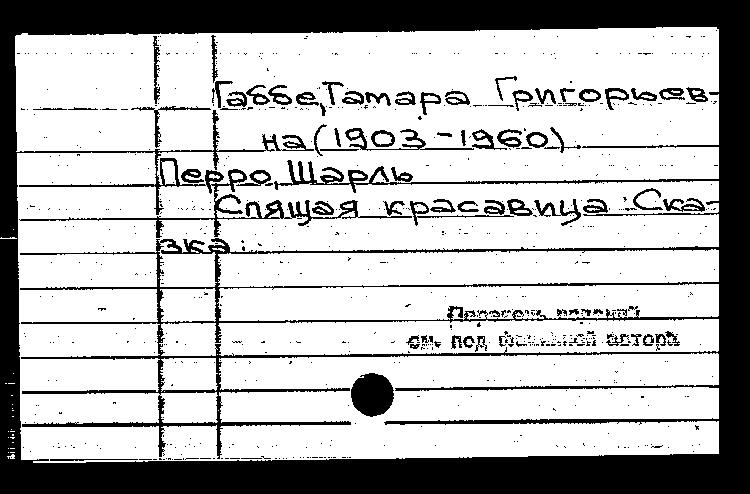 Габбе, Тамара Григорьев-
на (1903-1960).
Перро, Шарль
Спящая красавица: Ска-
зка.
Перечень изданий
см. под фамилией автора